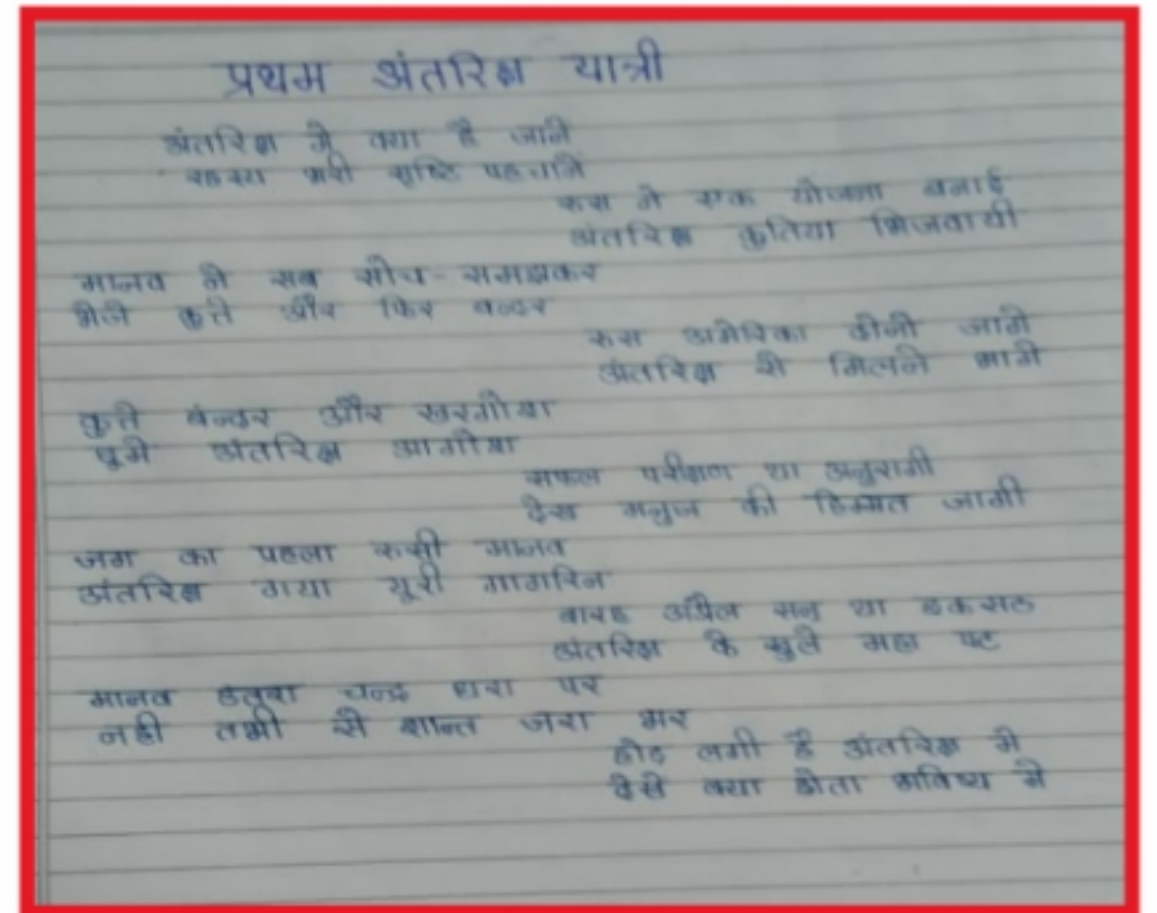 प्रथम अंतरिक्ष यात्री
अंतरिक्ष में क्या है जाने
रहस्य भरी सृष्टि पहचाने
रूस ने एक योजना बनाई
अंतरिक्ष कुतिया भिजवायी
मानव ने सब सोच-समझकर
भेजे कुत्ते और फिर बन्दर
रूस अमेरिका दोनो जागे
अंतरिक्ष से मिलने भागे
कुत्ते बन्दर और खरगोश
घूमे अंतरिक्ष आगोश
सफल परीक्षण था अनुरागी
देख मनुज की हिम्मत जागी
जग का पहला रूसी मानव
अंतरिक्ष गया यूरी गागरिन
बारह अप्रैल सन् था इकसठ
अंतरिक्ष के खुले महा पट
मानव उतरा चन्द्र धरा पर
नही तभी से शान्त जरा भर
होड़ लगी है अंतरिक्ष में
देखे क्या होता भविष्य में